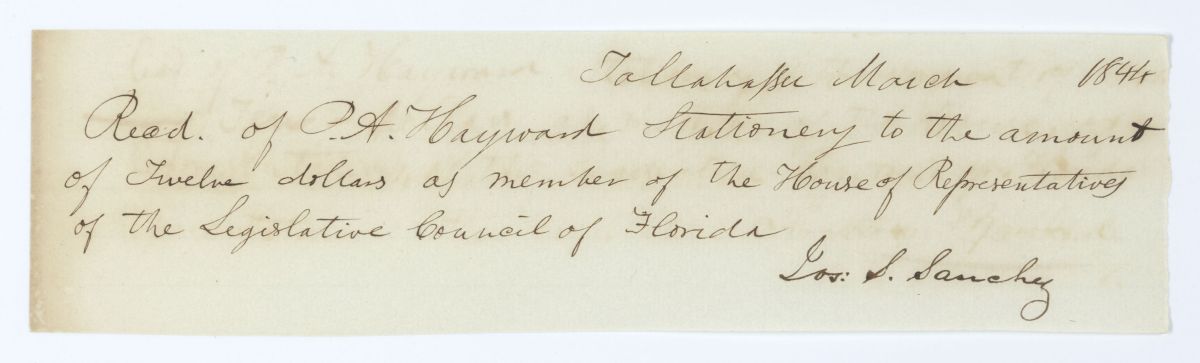 Tallahassee March 1844
Recd. of P. A. Hayward Stationery to the amount
of Twelve dollars as member of the House of Representatives
of the Legislative Council of Florida
Jos: S. Sanchez